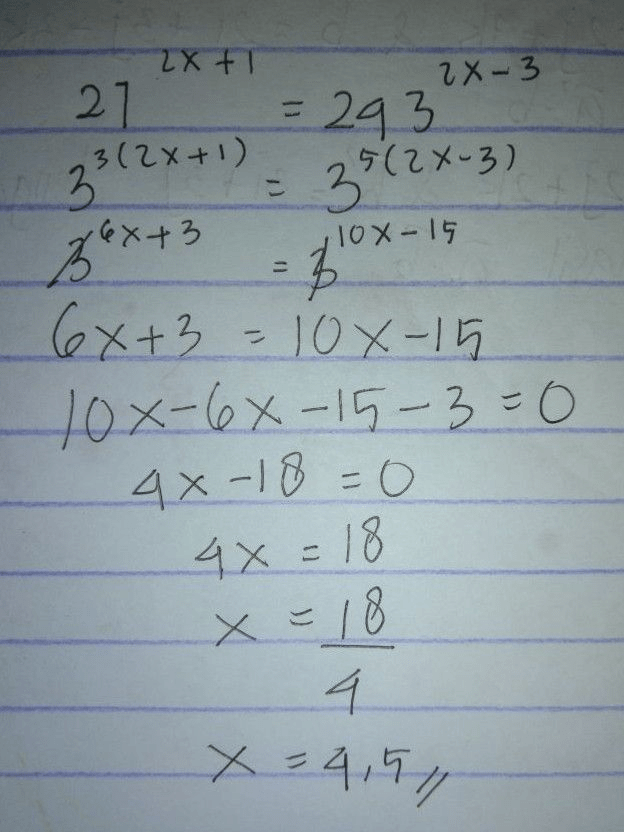 27^(2x+1) = 243^(2x-3)
3^(3(2x+1)) = 3^(5(2x-3))
3^(6x+3) = 3^(10x-15)
6x+3 = 10x-15
10x-6x-15-3=0
4x-18=0
4x=18
x=18/4
x=4,5//